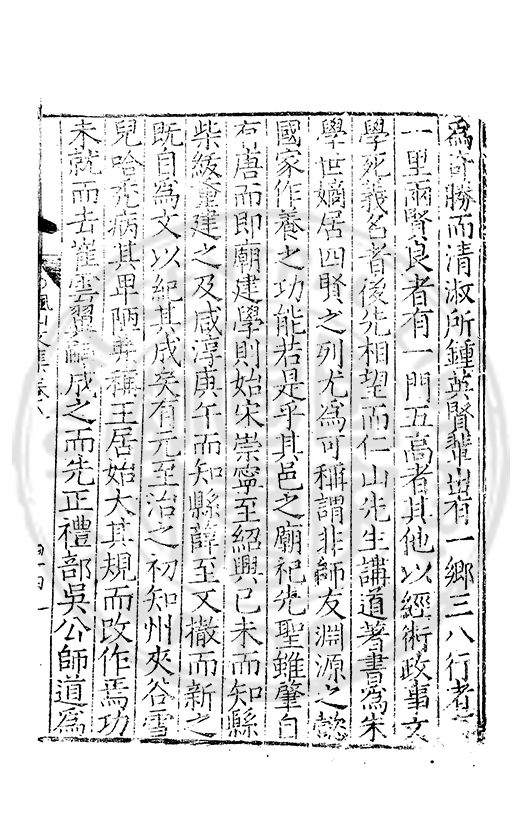 為奇勝而清淑所鍾英賢輩出有一鄉三八行者有
一里兩賢良者有一門五高者其他以經術政事文
學死義名者後先相望而仁山先生講道著書為朱
學世嫡居四賢之列尤為可稱謂非師友淵源之懿
國家作養之功能若是乎其邑之廟祀先聖雖肇自
有唐而即廟建學則始宋崇寧至紹興己未而知縣
柴紱重建之及咸淳庚午而知縣薛至文撤而新之
既自為文以紀其成矣有元至治之初知州夾谷雪
兒哈禿病其卑陋弗稱王居始大其規而改作焉功
未就而去崔雲翼嗣成之而先正禮部吳公師道為